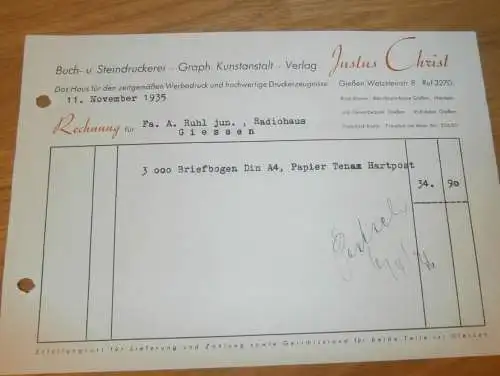 Buch- u. Steindruckerei - Graph. Kunstanstalt - Verlag
Justus Christ
Das Haus für den zeitgemäßen Werbedruck und hochwertige Druckerzeugnisse
Gießen Walltorstr. 8 Ruf 3270
11. November 1935
Rechnung für
Fa. A. Ruhl jun. , Radiohaus
Giessen
3 000 Briefbogen Din A4, Papier Tenax Hartpost
34. 90
Erfüllungsort für Lieferung und Zahlung sowie Gerichtsstand für beide Teile ist Giessen